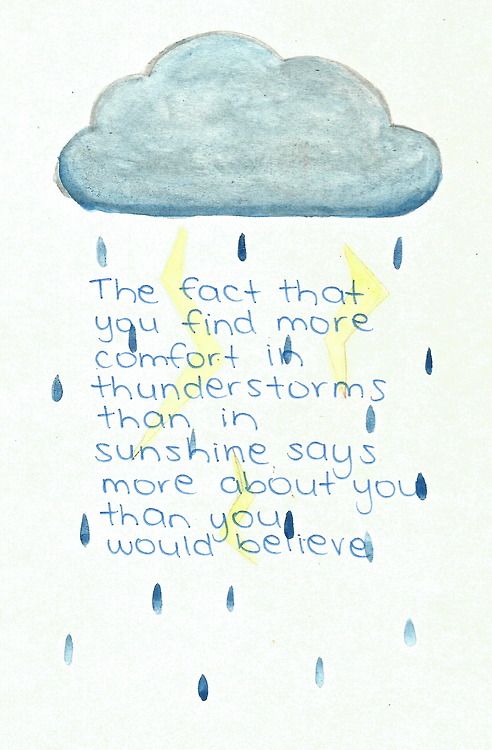 The fact that
you find more
comfort in
thunderstorms
than in
sunshine says
more about you
than you
would believe